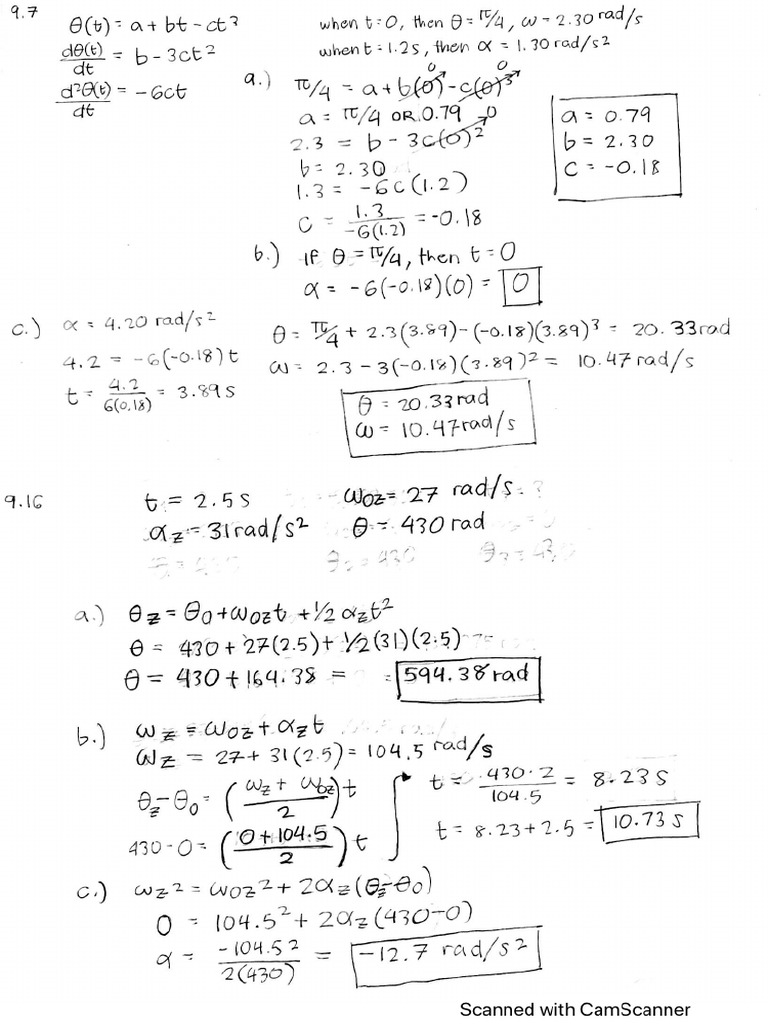 9.7
θ(t) = a + bt - ct³
when t=0, then θ = π/4, ω = 2.30 rad/s
dθ(t)/dt = b - 3ct²
when t = 1.2s, then α = 1.30 rad/s²
d²θ(t)/dt = -6ct
a.) π/4 = a + b(0)⁰ - c(0)³ ⁰
a = π/4 OR 0.79
2.3 = b - 3c(0)² ⁰
b = 2.30
1.3 = -6c(1.2)
c = 1.3/-6(1.2) = -0.18
a = 0.79
b = 2.30
c = -0.18
b.) If θ = π/4, then t = 0
α = -6(-0.18)(0) = 0
c.) α = 4.20 rad/s²
4.2 = -6(-0.18)t
t = 4.2/6(0.18) = 3.89 s
θ = π/4 + 2.3(3.89) - (-0.18)(3.89)³ = 20.33 rad
ω = 2.3 - 3(-0.18)(3.89)² = 10.47 rad/s
θ = 20.33 rad
ω = 10.47 rad/s
9.16
t = 2.5 s
ω0z = 27 rad/s
αz = 31 rad/s²
θ = 430 rad
a.) θz = θ0 + ω0zt + 1/2 αzt²
θ = 430 + 27(2.5) + 1/2(31)(2.5)
θ = 430 + 164.38 = 594.38 rad
b.) ωz = ω0z + αzt
ωz = 27 + 31(2.5) = 104.5 rad/s
θz - θ0 = (ωz + ω0z/2)t
430 - 0 = (0 + 104.5/2) t
t = 430·2/104.5 = 8.23 s
t = 8.23 + 2.5 = 10.73 s
c.) ωz² = ω0z² + 2αz(θz - θ0)
0 = 104.5² + 2αz(430 - 0)
α = -104.5²/2(430) = -12.7 rad/s²
Scanned with CamScanner